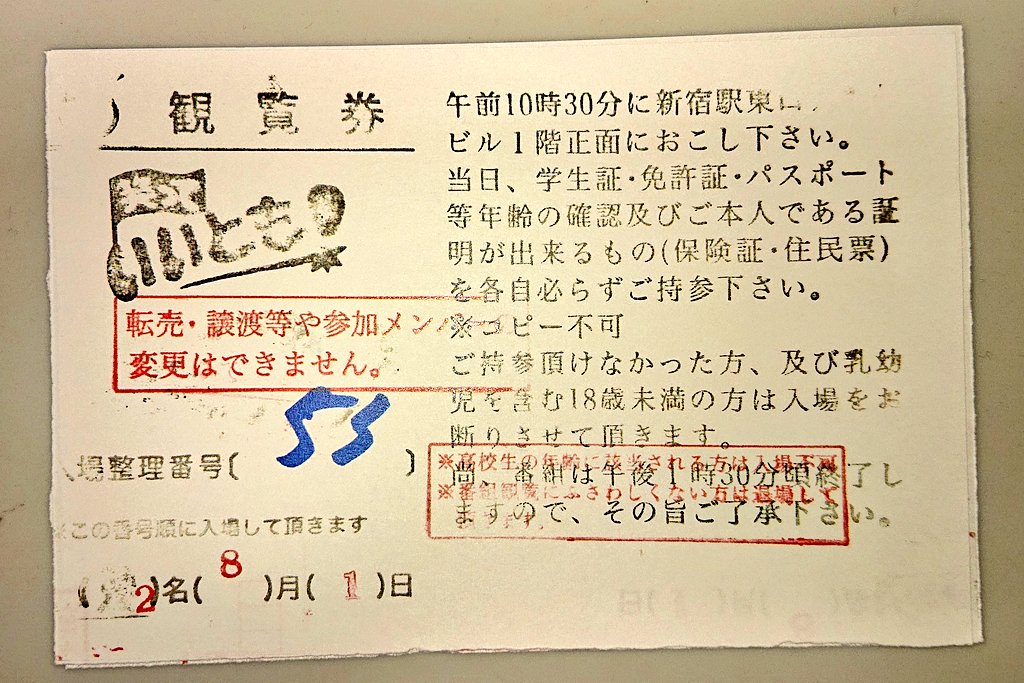 観覧券
いいとも!
転売・譲渡等や参加メンバー
変更はできません。
53
場整理番号( )
※この番号順に入場して頂きます
( 2)名( 8 )月( 1 )日
午前10時30分に新宿駅東口
ビル1階正面におこし下さい。
当日、学生証・免許証・パスポート
等年齢の確認及びご本人である証
明が出来るもの(保険証・住民票)
を各自必らずご持参下さい。
※コピー不可
ご持参頂けなかった方、及び乳幼
児を含む18歳未満の方は入場をお
断りさせて頂きます。
※高校生の年齢に該当される方は入場不可
尚、番組は午後1時30分頃終了し
※番組観覧にふさわしくない方は退場して
ますので、その旨ご了承下さい。